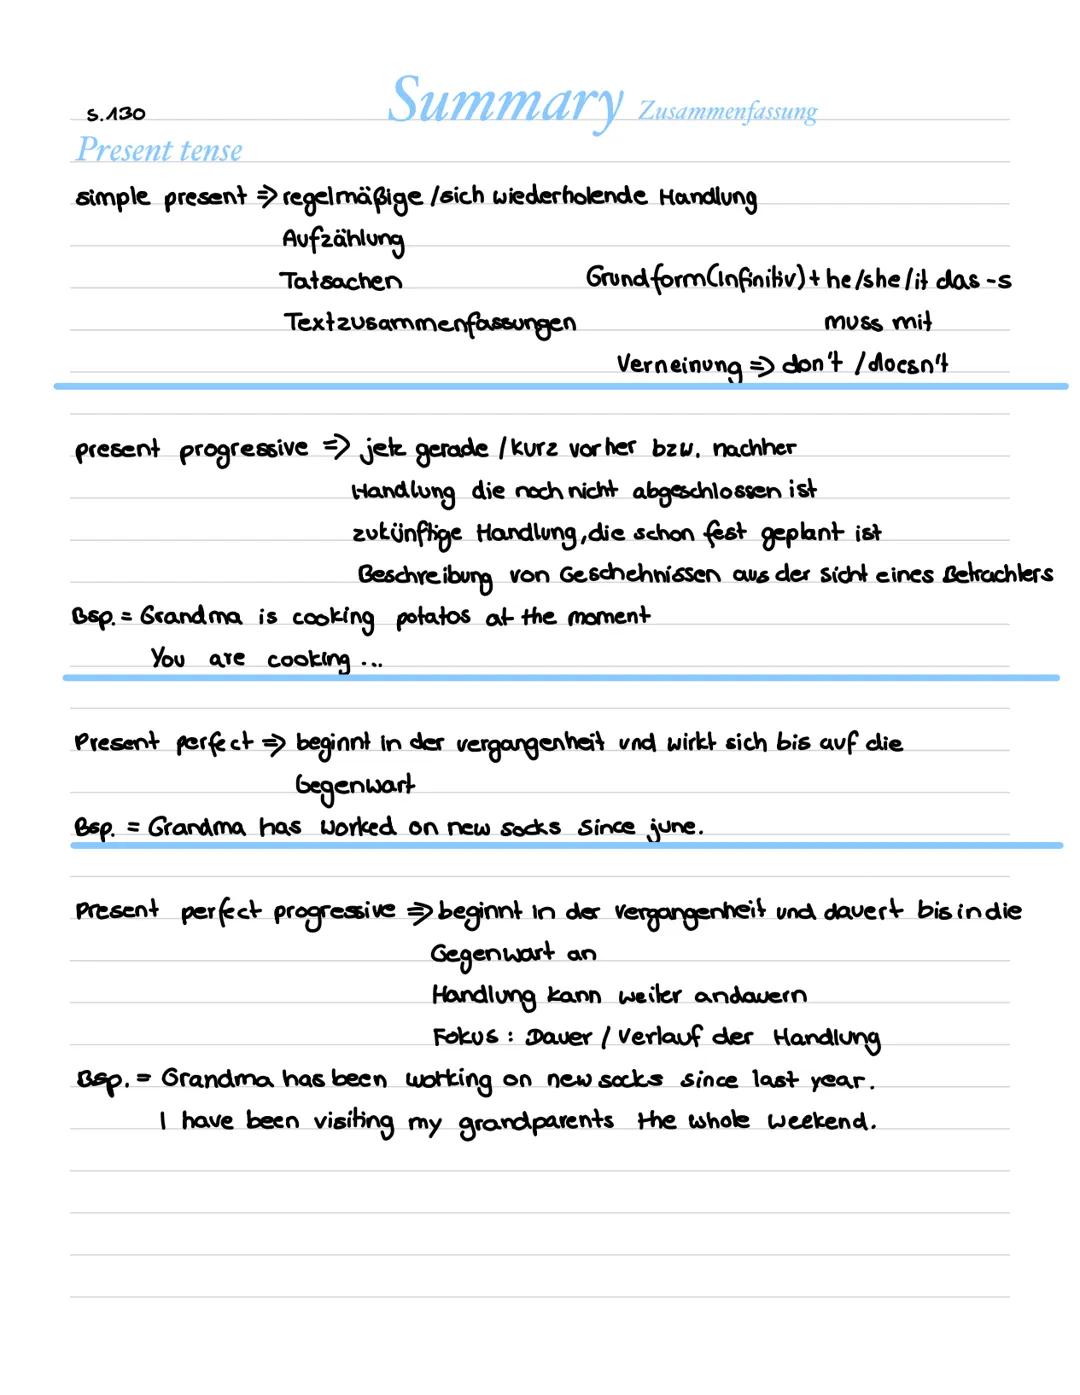 s.130
Summary Zusammenfassung
Present tense
simple present => regelmäßige / sich wiederholende Handlung
Aufzählung
Tatsachen Grundform (Infinitiv) + he/she/it das -s
Textzusammenfassungen muss mit
Verneinung => don't / doesn't
present progressive => jetz gerade / kurz vorher bzw. nachher
Handlung die noch nicht abgeschlossen ist
zukünftige Handlung, die schon fest geplant ist
Beschreibung von Geschehnissen aus der Sicht eines Betrachters
Bsp. = Grandma is cooking potatos at the moment
You are cooking ...
Present perfect => beginnt in der vergangenheit und wirkt sich bis auf die
Gegenwart
Bsp. = Grandma has worked on new socks since june.
Present perfect progressive => beginnt in der vergangenheit und dauert bis in die
Gegenwart an
Handlung kann weiter andauern
Fokus : Dauer / Verlauf der Handlung
Bsp. = Grandma has been working on new socks since last year.
I have been visiting my grandparents the whole weekend.